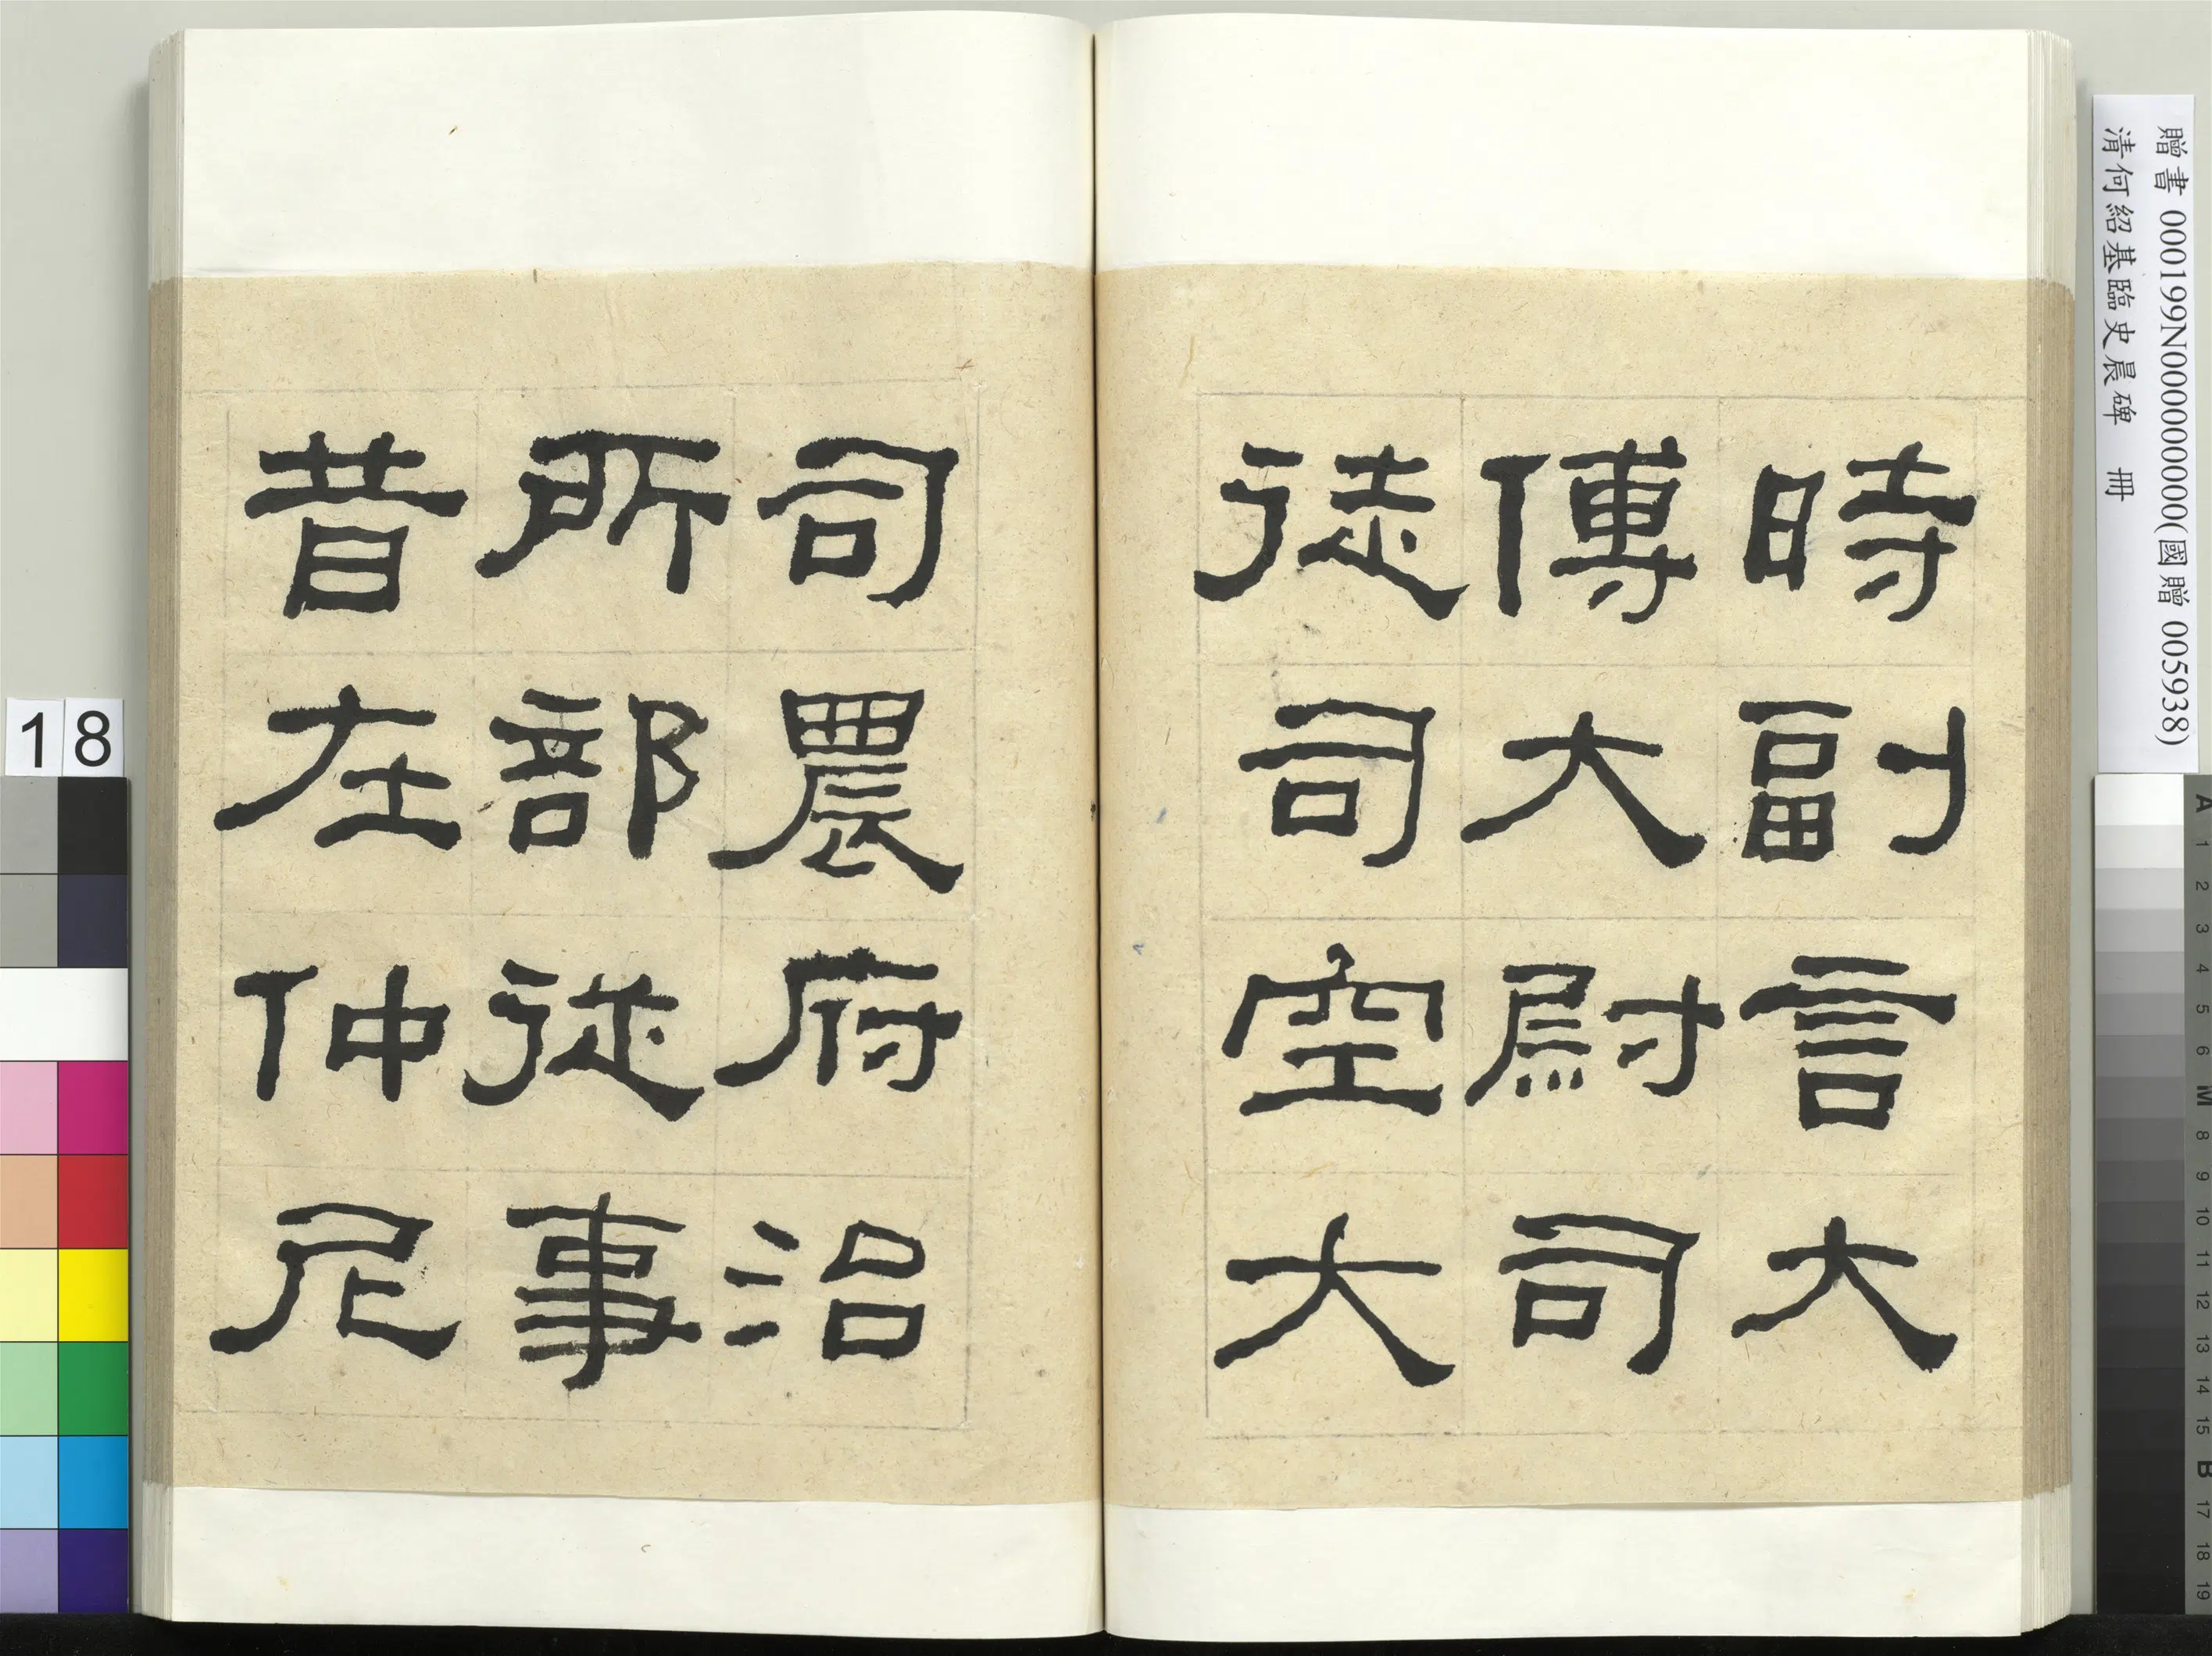 時副言大
傅大尉司
徒司空大
司農府治
所部從事
昔在仲尼
贈書 000199N000000000(國贈 005938)
清何紹基臨史晨碑 冊
18
A 1 2 3 4 5 6 M 8 9 10 11 12 13 14 15 B 17 18 19